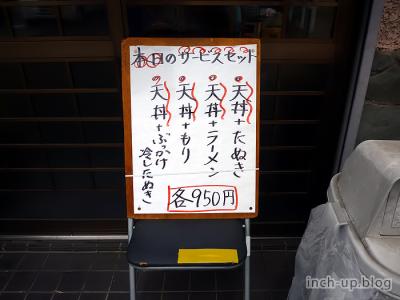 本日のサービスセット
天丼+たぬき
天丼+ラーメン
天丼+もり
天丼+ぶっかけ
冷したぬき
各950円
inch-up.blog